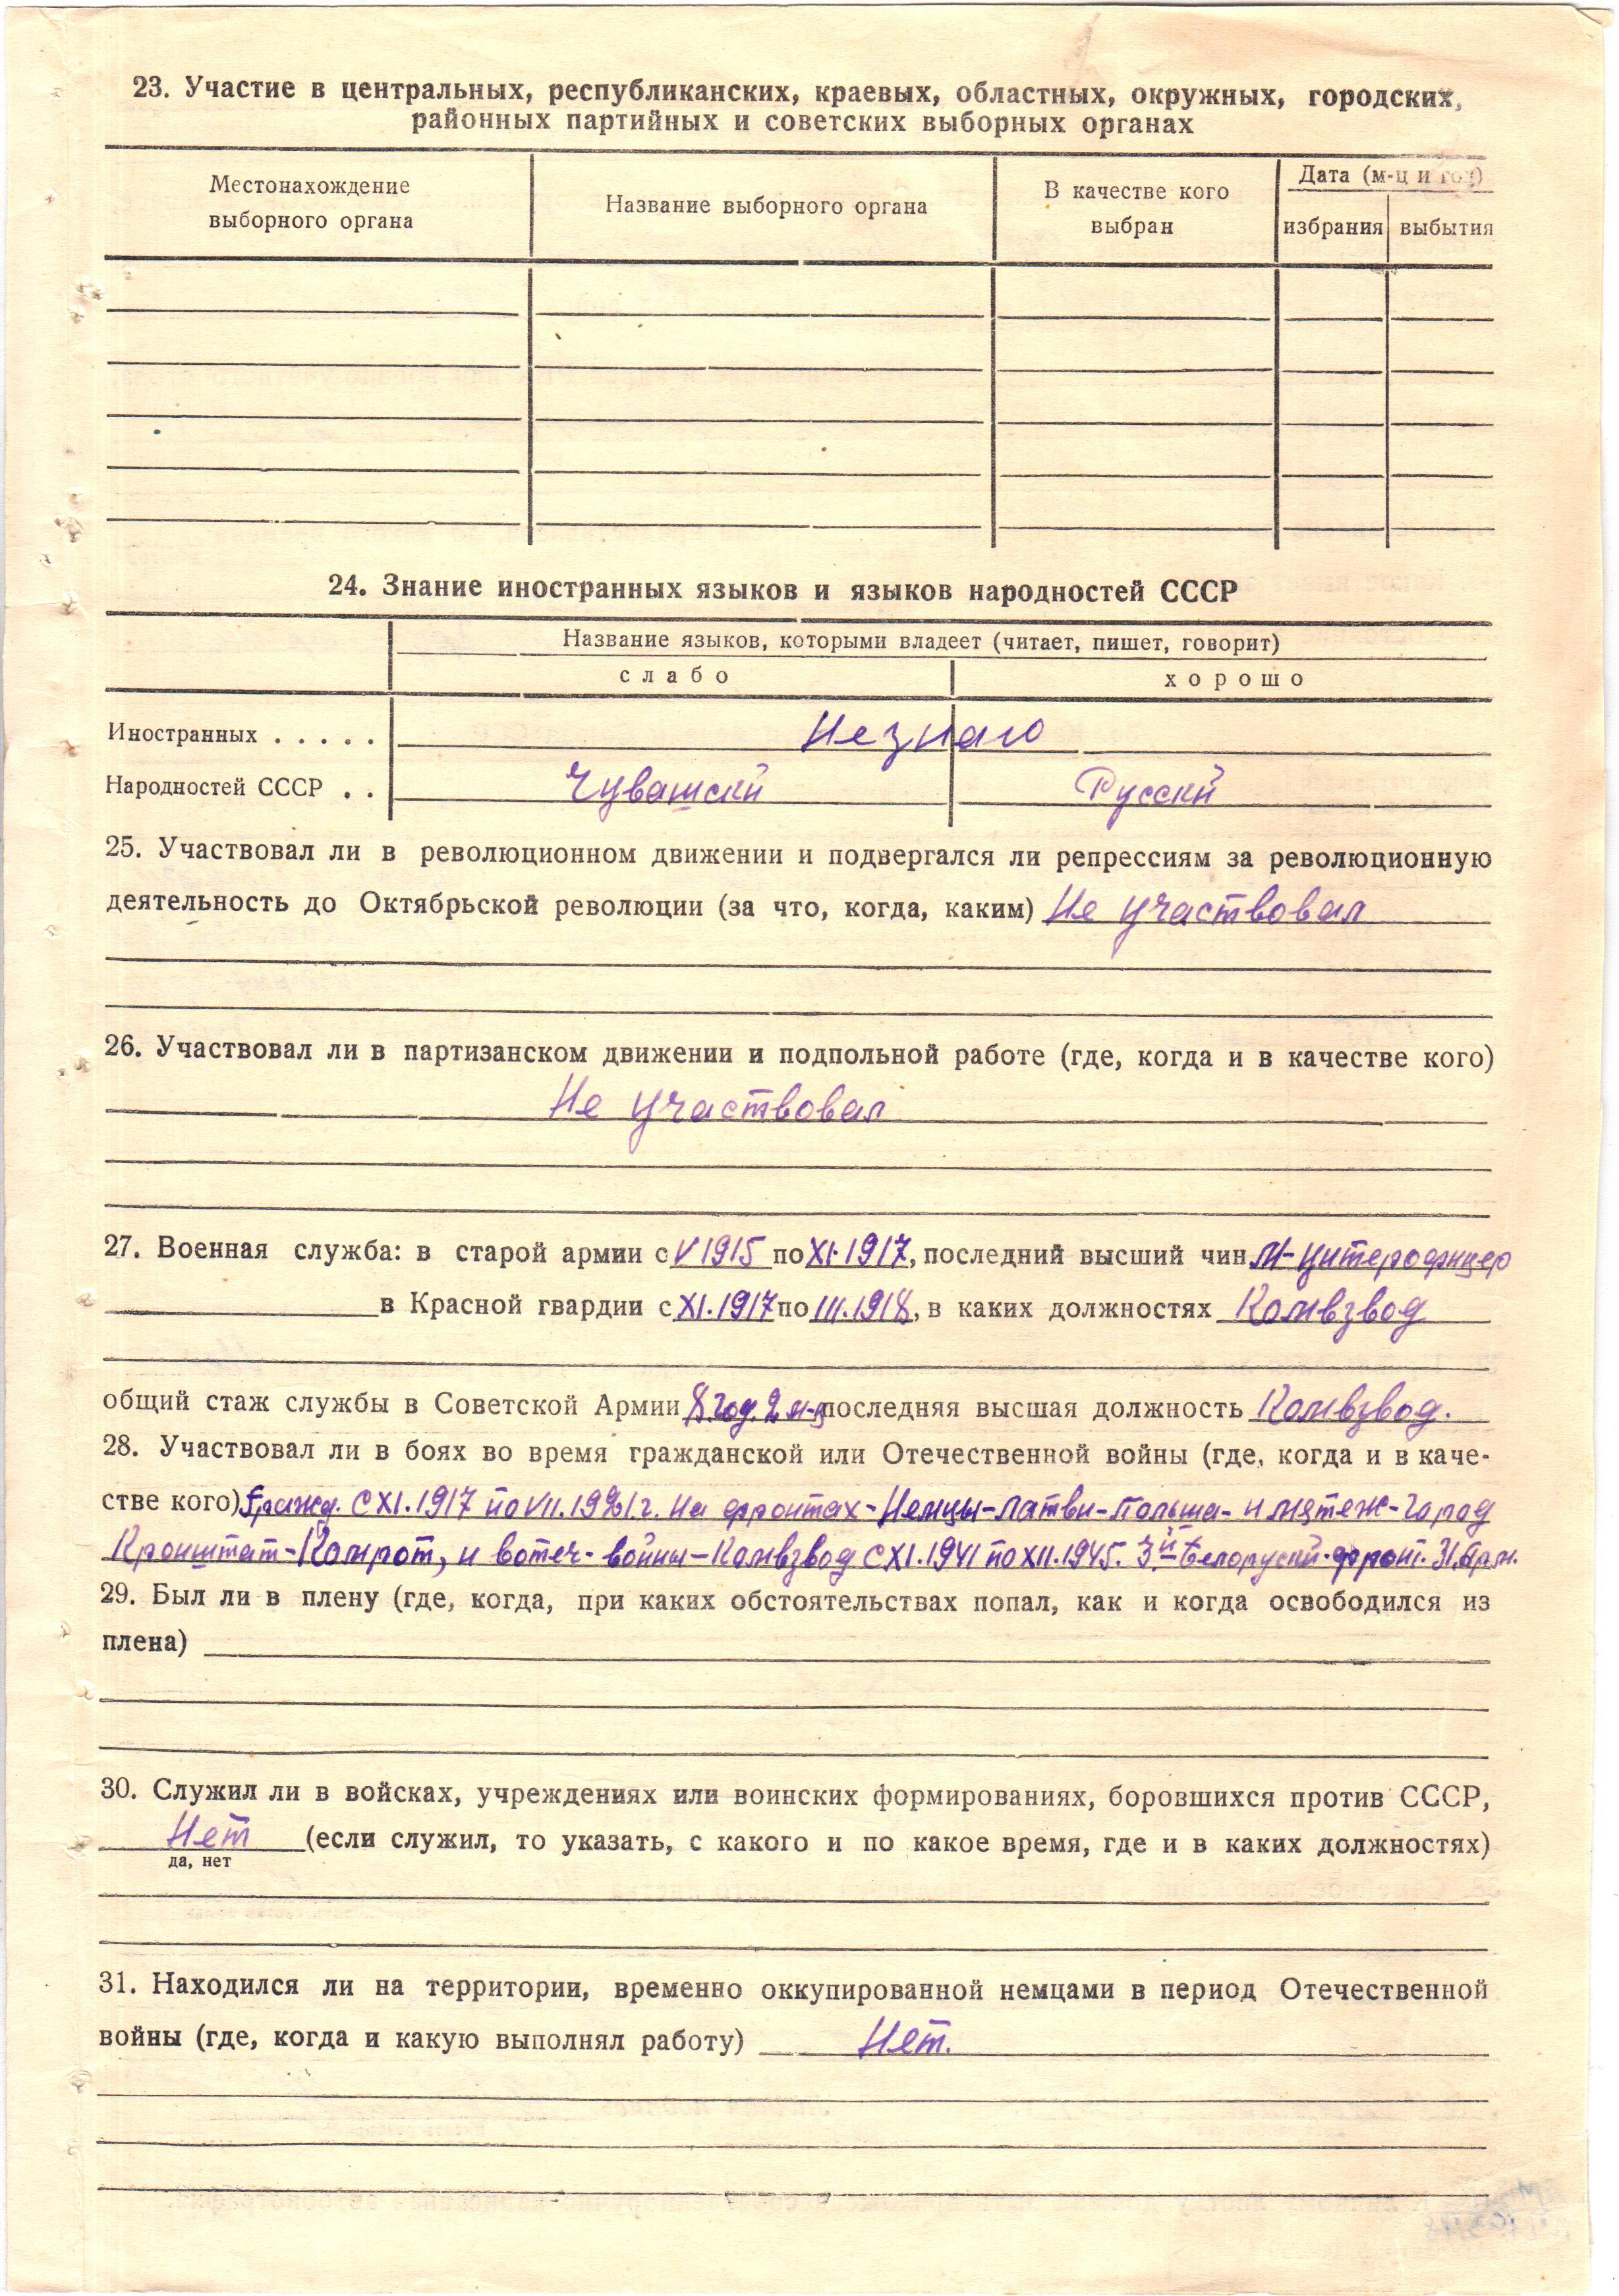 23. Участие в центральных, республиканских, краевых, областных, окружных, городских,
районных партийных и советских выборных органах
Местонахождение
выборного органа
Название выборного органа
В качестве кого
выбран
Дата (м-ц и год)
избрания
выбытия
24. Знание иностранных языков и языков народностей СССР
Название языков, которыми владеет (читает, пишет, говорит)
слабо
хорошо
Иностранных . . . . . Не знаю
Народностей СССР . . Чувашскй Русскй
25. Участвовал ли в революционном движении и подвергался ли репрессиям за революционную
деятельность до Октябрьской революции (за что, когда, каким) Не участвовал
26. Участвовал ли в партизанском движении и подпольной работе (где, когда и в качестве кого)
Не участвовал
27. Военная служба: в старой армии с V 1915 по XI.1917, последний высший чин М-унтерофицер
в Красной гвардии с XI.1917 по III.1918, в каких должностях Комвзвод
общий стаж службы в Советской Армии 8 год. 2 м-ц последняя высшая должность Комвзвод.
28. Участвовал ли в боях во время гражданской или Отечественной войны (где, когда и в каче-
стве кого) Гражд. С XI.1917 по VII.1921г. На фронтах-Немцы-Латви-Польша-и мятеж-город
Кронштат-Комрот, и вотеч-войны-Комвзвод С XI.1941 по XII.1945. 3й Белорускй-фронт. 31.Арм.
29. Был ли в плену (где, когда, при каких обстоятельствах попал, как и когда освободился из
плена)
30. Служил ли в войсках, учреждениях или воинских формированиях, боровшихся против СССР,
Нет (если служил, то указать, с какого и по какое время, где и в каких должностях)
да, нет
31. Находился ли на территории, временно оккупированной немцами в период Отечественной
войны (где, когда и какую выполнял работу) Нет.